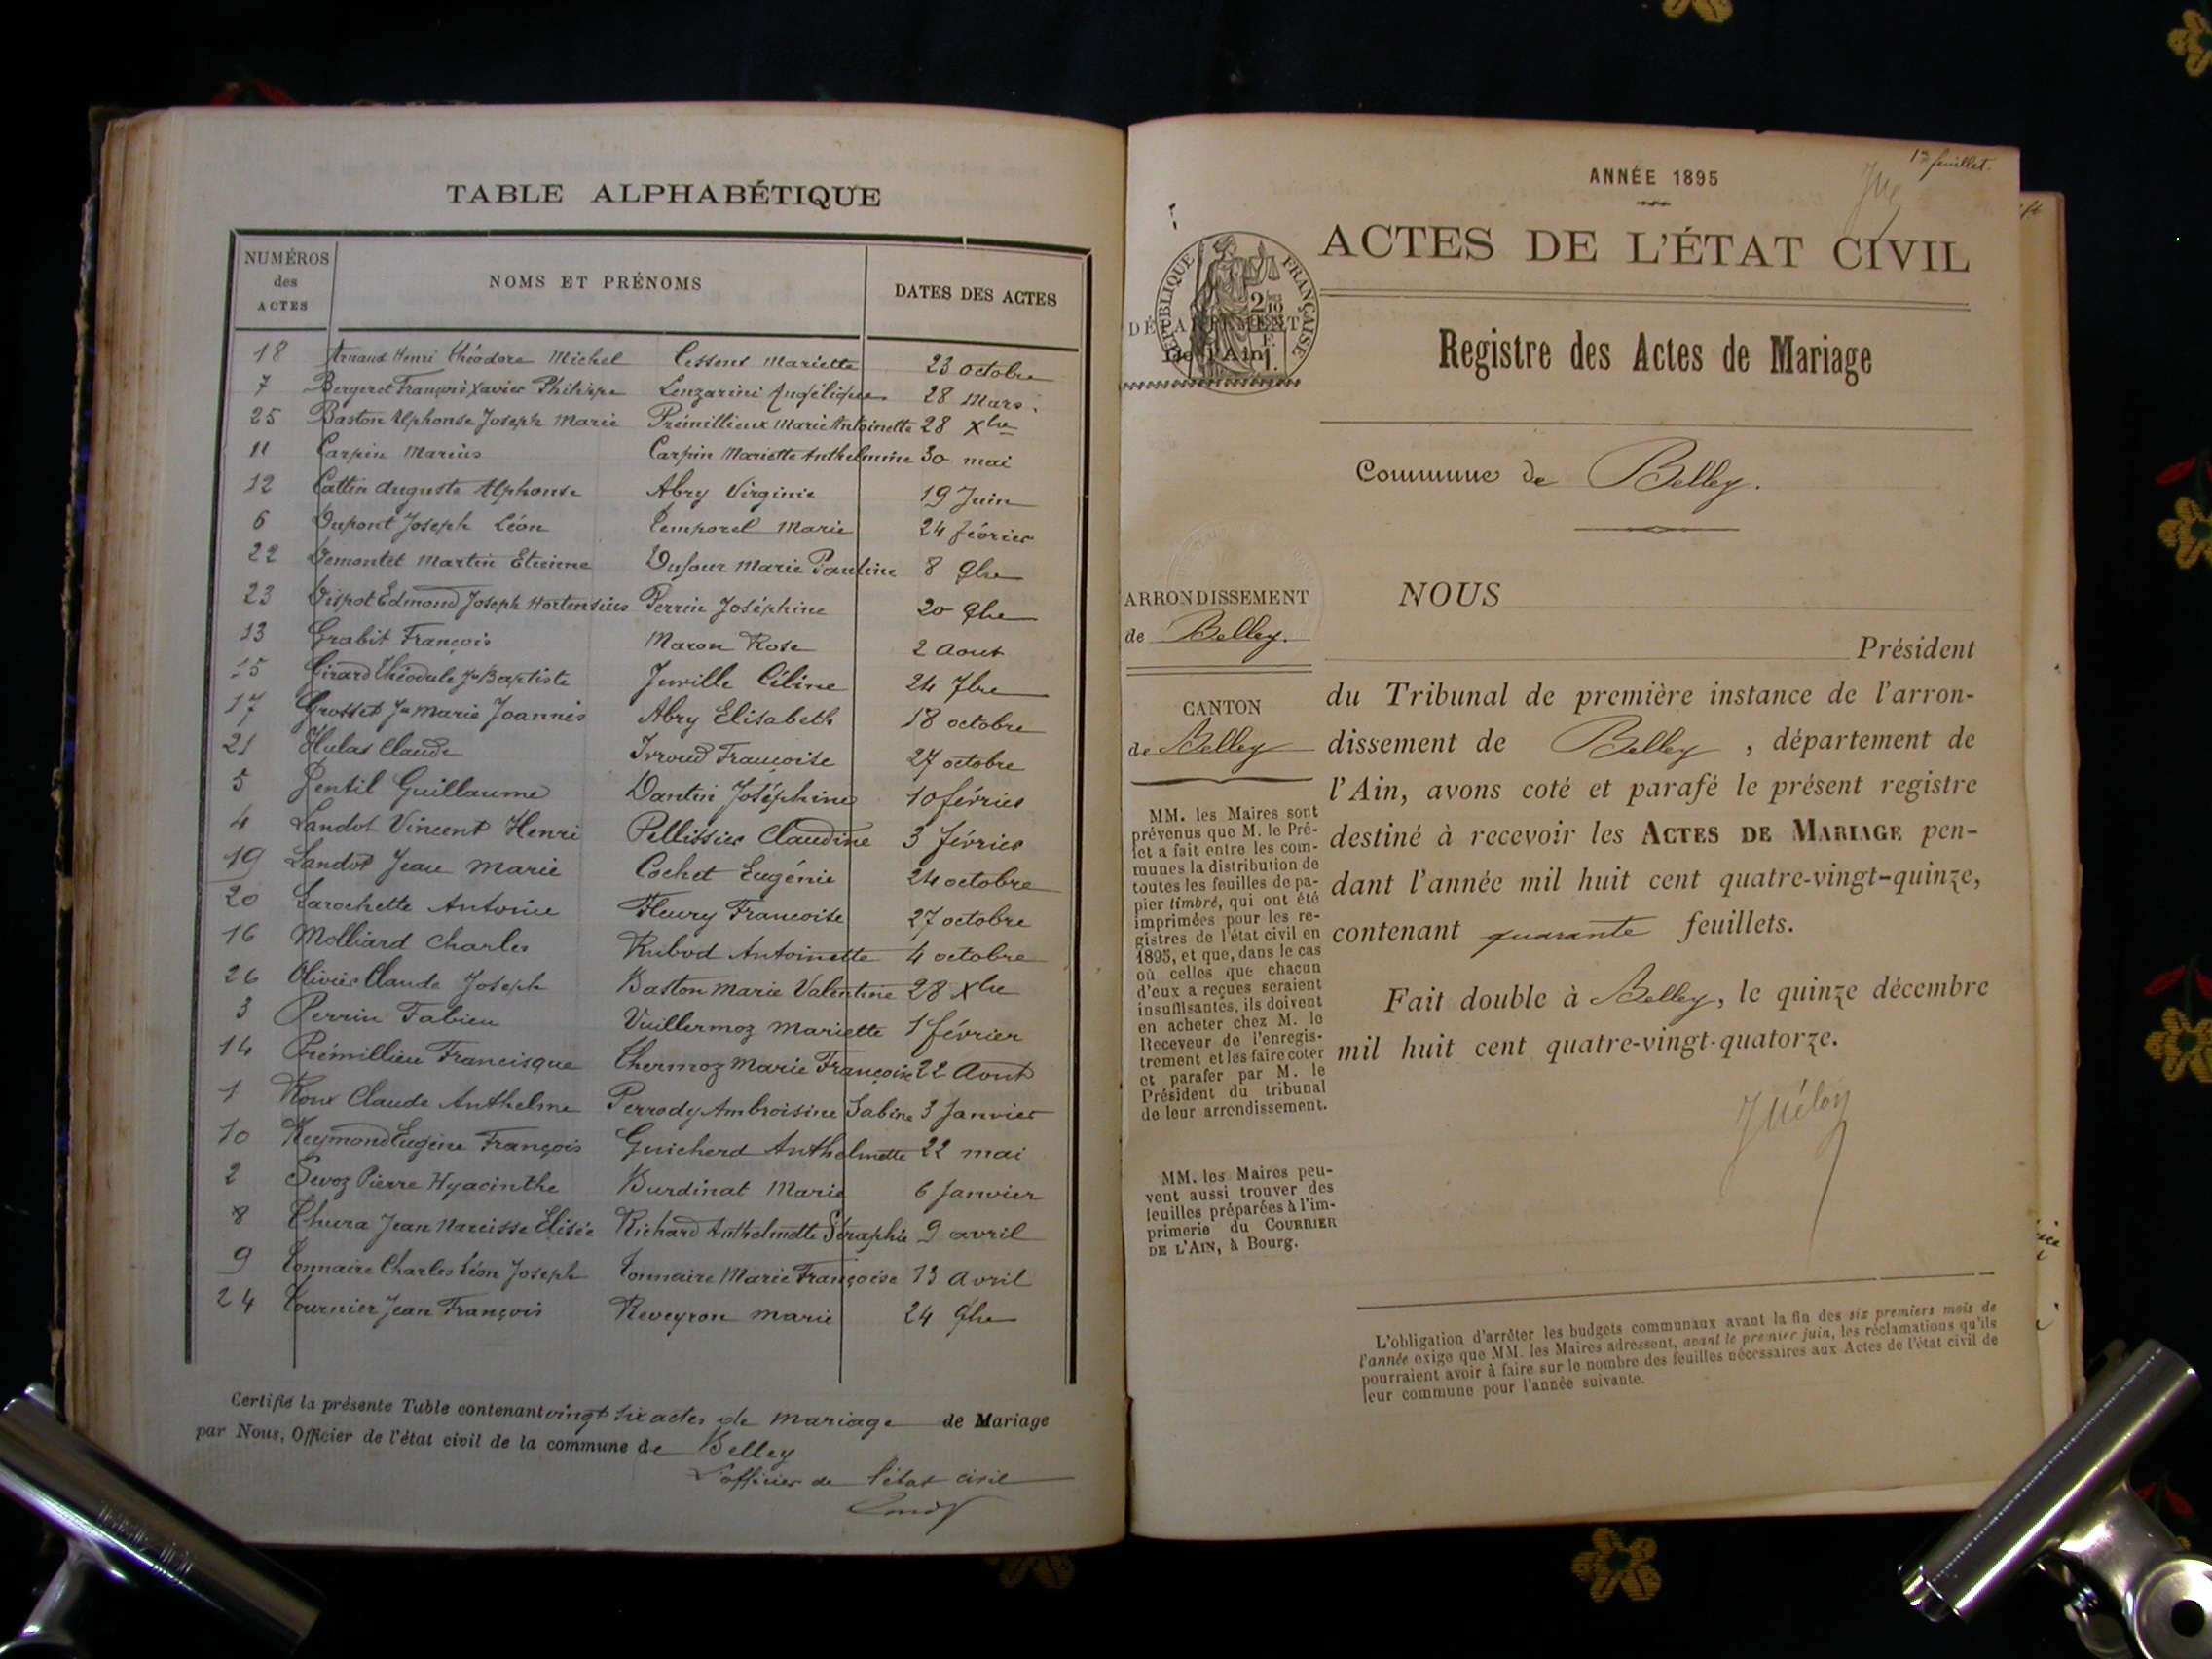 TABLE ALPHABÉTIQUE
NUMÉROS des ACTES NOMS ET PRÉNOMS DATES DES ACTES
18 Arnaud Henri Théodore Michel Tessent Mariette 23 octobre
7 Bergeret François Xavier Philippe Lenzarini Angélique 28 Mars.
25 Baston Alphonse Joseph Marie Prémillieux Marie Antoinette 28 Xbre
11 Carpin Marius Carpin Mariette Anthelmine 30 mai
12 Cattin Auguste Alphonse Abry Virginie 19 Juin
6 Dupont Joseph Léon Temporel Marie 24 février
22 Demontet Martin Etienne Dufour Marie Pauline 8 9bre
23 Dispot Edmond Joseph Hortensius Perrin Joséphine 20 9bre
13 Grabit François Maron Rose 2 Aout
15 Girard Théodule Jn Baptiste Juville Céline 24 7bre
17 Grosset Jn Marie Joannès Abry Elisabeth 18 octobre
21 Hulas Claude Irroud Françoise 27 octobre
5 Gentil Guillaume Dantin Joséphine 10 février
4 Landot Vincent Henri Pellissier Claudine 3 février
19 Landot Jean Marie Cochet Eugénie 24 octobre
20 Larochette Antoine Fleury Francoise 27 octobre
16 Molliard Charles Rubod Antoinette 4 octobre
26 Olivier Claude Joseph Baston Marie Valentine 28 Xbre
3 Perrin Fabien Vuillermoz Mariette 1 février
14 Prémillieu Francisque Chermoz Marie Françoise 22 Aout
1 Roux Claude Anthelme Perrody Ambroisine Sabine 3 Janvier
10 Reymond Eugène François Guicherd Anthelmette 22 mai
2 Sevoz Pierre Hyacinthe Burdinat Marie 6 Janvier
8 Thura Jean Narcisse Elisée Richard Anthelmette Séraphie 9 avril
9 Tonnaire Charles Léon Joseph Tonnaire Marie Françoise 13 Avril
24 Tournier Jean François Reveyron Marie 24 9bre
Certifié la présente Table contenant vingt six actes de mariage de Mariage
par Nous, Officier de l'état civil de la commune de Belley
L'officier de l'état civil
1er feuillet.
ANNÉE 1895
ACTES DE L'ÉTAT CIVIL
RÉPUBLIQUE FRANÇAISE
DÉPARTEMENT
De l'Ain
Registre des Actes de Mariage
Commune de Belley.
ARRONDISSEMENT
de Belley.
CANTON
de Belley
MM. les Maires sont
prévenus que M. le Pré-
fet a fait entre les com-
munes la distribution de
toutes les feuilles de pa-
pier timbré, qui ont été
imprimées pour les re-
gistres de l'état civil en
1895, et que, dans le cas
où celles que chacun
d'eux a reçues seraient
insuffisantes, ils doivent
en acheter chez M. le
Receveur de l'enregis-
trement et les faire coter
et parafer par M. le
Président du tribunal
de leur arrondissement.
MM. les Maires peu-
vent aussi trouver des
feuilles préparées à l'im-
primerie du COURRIER
DE L'AIN, à Bourg.
NOUS
Président
du Tribunal de première instance de l'arron-
dissement de Belley, département de
l'Ain, avons coté et parafé le présent registre
destiné à recevoir les ACTES DE MARIAGE pen-
dant l'année mil huit cent quatre-vingt-quinze,
contenant quarante feuillets.
Fait double à Belley, le quinze décembre
mil huit cent quatre-vingt-quatorze.
L'obligation d'arrêter les budgets communaux avant la fin des six premiers mois de
l'année exige que MM. les Maires adressent, avant le premier juin, les réclamations qu'ils
pourraient avoir à faire sur le nombre des feuilles nécessaires aux Actes de l'état civil de
leur commune pour l'année suivante.